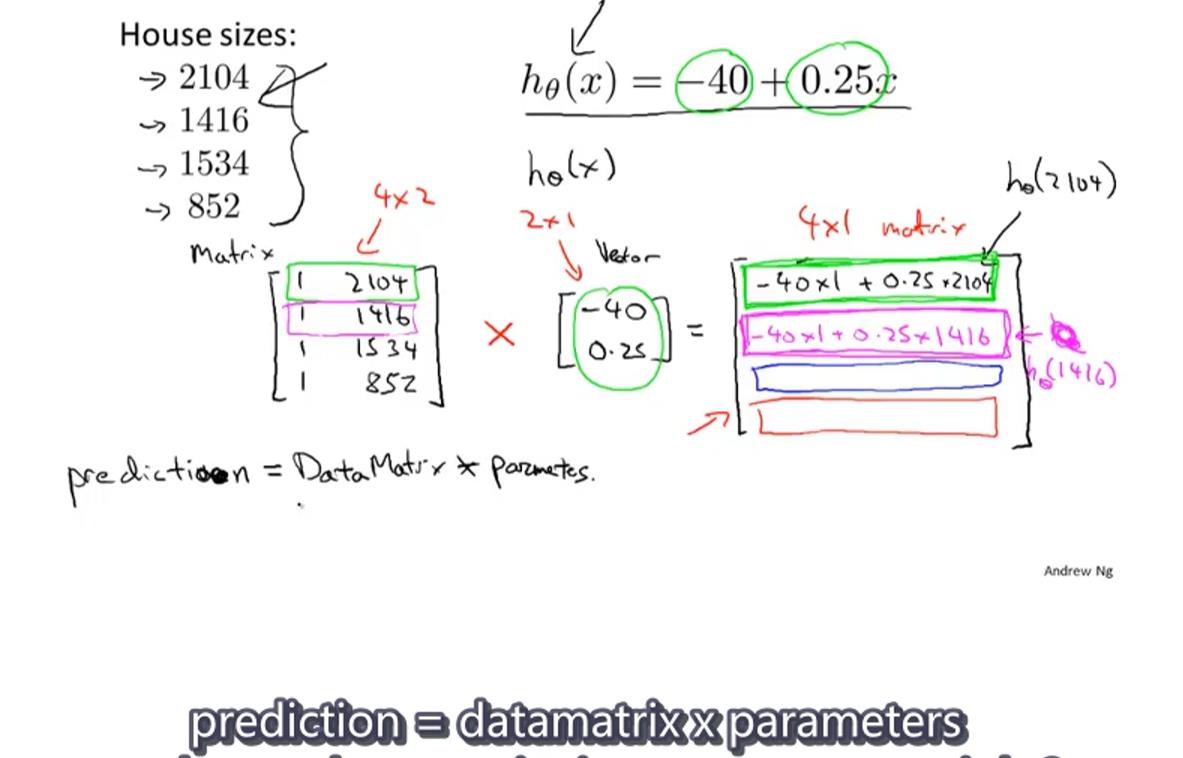 House sizes:
→ 2104
→ 1416
→ 1534
→ 852
hθ(x) = −40 + 0.25x
hθ(x)
hθ(2104)
4x2
2x1
4x1 matrix
Matrix
Vector
1 2104
1 1416
1 1534
1 852
×
-40
0.25
=
-40x1 + 0.25x2104
-40x1 + 0.25x1416
hθ(1416)
prediction = DataMatrix * parmetes.
Andrew Ng
prediction = datamatrix x parameters